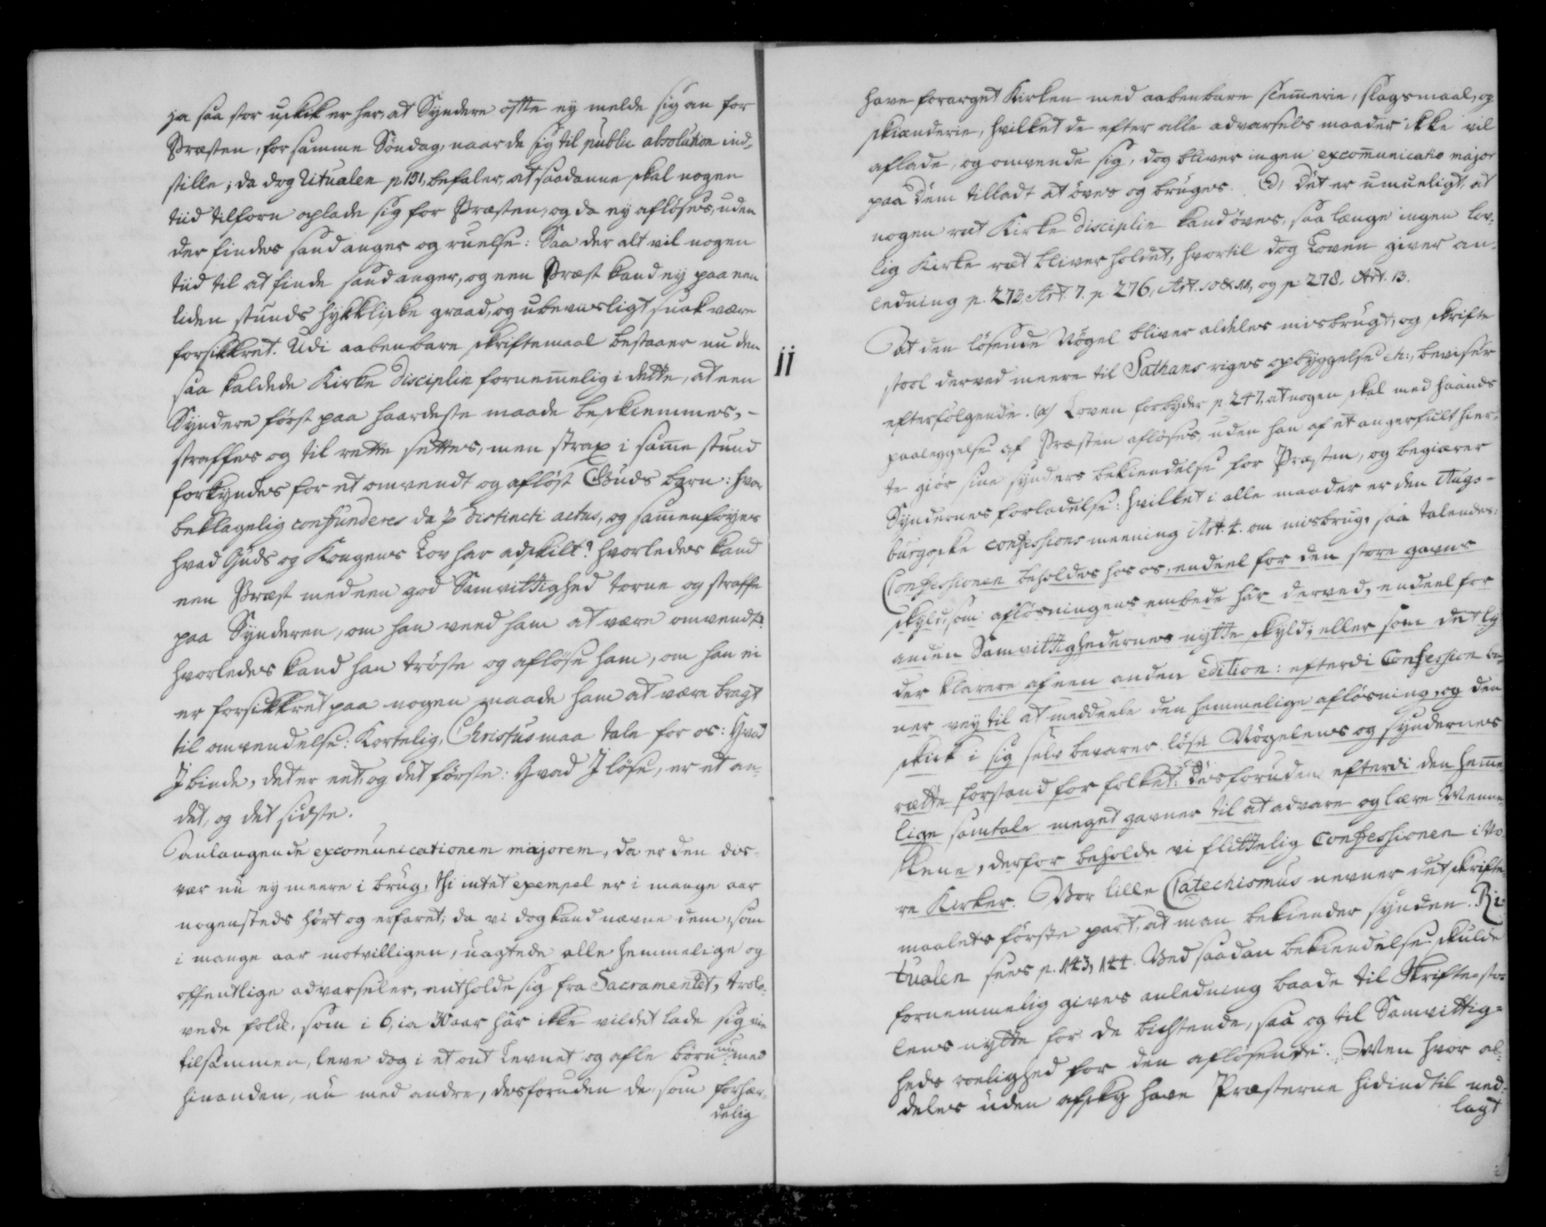 ja saa stor uskik er her, at Syndere ofte ey melde sig an for
Præsten, for samme Søndag, naar de sig til public absolution ind-
stille; da dog Ritualen p 151, befaler, at saadanne skal nogen
tiid tilforn oplade sig for Præsten, og da ey afløses, uden
der findes sand anger og ruelse: Saa der alt vil nogen
tiid til at finde sand anger, og een Præst kand ey paa een
liden stunds hykkelske graad, og ubeviisligt snak være
forsikkret. Udi aabenbare skriftemaal bestaaer nu den
saa kaldede Kirke Disciplin fornemmelig i dette, at een
Syndere først paa haardeste maade beskiemmes, -
straffes og til rette settes, men strax i samme stund
forkyndes for et omvendt og afløst Guds barn: hvor
beklagelig confunderes da distincti actus, og sammenføyes
hvad Guds og Kongens Lov har adskilt? hvorledes kand
een Præst med een god Samvittighed torne og straffe
paa Synderen, om han veed ham at være omvendt?
hvorledes kand han trøste og afløse ham, om han ei
er forsikkret paa nogen maade ham at være bragt
til omvendelse: Kortelig, Christus maa tale for os: Hvad
I binde, det er eet, og det første: Hvad I løse, er et an-
det, og det sidste.
Anlangende excomunicationem majorem, da er den des-
vær nu ey meere i brug, thi intet exempel er i mange aar
nogensteds hørt og erfaret; da vi dog kand nævne dem, som
i mange aar motvilligen, uagtede alle hemmelige og
offentlige advarseler, entholde sig fra Sacramentet, trolo-
vede folk, som i 6, ia 30 aar har ikke villet lade sig vie
tilsammen, leve dog i et ont Levnet og afle børn nu med
hinanden, nu med andre, desforuden de som forhær-
delig
11
have forarget Kirken med aabenbare skemmerie, slagsmaal, og
skienderie, hvilket de efter alle advarsels maader ikke vil
aflade, og omvende sig, dog bliver ingen excommunicatio major
paa dem tilladt at øves og bruges. Det er umueligt, at
nogen ret Kirke Disciplin kand øves, saa længe ingen lov-
lig Kirke ret bliver holdet, hvortil dog Loven giver an-
ledning p 273, Art 7. p 276, Art. 10 & 11, og p 278, Art. 13.
At den løsende Nøgel bliver aldeles misbrugt, og skrifte
stoel derved meere til Sathans riges opbyggelse etc, beviser
efterfølgende. (a) Loven forbyder p 247, at nogen skal med haands
paaleggelse af Præsten afløses, uden han af et angerfult hier-
te giør sine synders bekiendelse for Præsten, og begiærer
Syndernes forladelse: hvilket i alle maader er den Augs-
burgske confessions meening Art. 4. om misbrug, saa talendes:
Confessionen beholdes hos os, endeel for den store gavns
skyld, som afløsningens embede har derved, endeel for
anden Samvittighedernes nytte skyld; eller som det ly-
der klarere af een anden edition: efterdi Confession ba-
ner vey til at meddeele den hemmelige afløsning, og den
skik i sig selv bevarer løse Nøgelens og syndernes
rette forstand for folket. Desforuden efterdi den hemme-
lige samtale meget gavner til at advare og lære Menne-
skene, derfor beholde vi flittelig Confessionen i vo-
re Kirker. Vor lille Catechismus nevner det skrifte-
maalets første part, at man bekiender synden. Ri-
tualen sees p. 143, 144. Ved saadan bekiendelse skulde
fornemmelig gives anledning baade til Skriftesto-
lens nytte for de bichtende, saa og til Samvittig-
heds roelighed for den afløsende. Men hvor al-
deles uden afsky have Præsterne hidindtil ned-
lagt